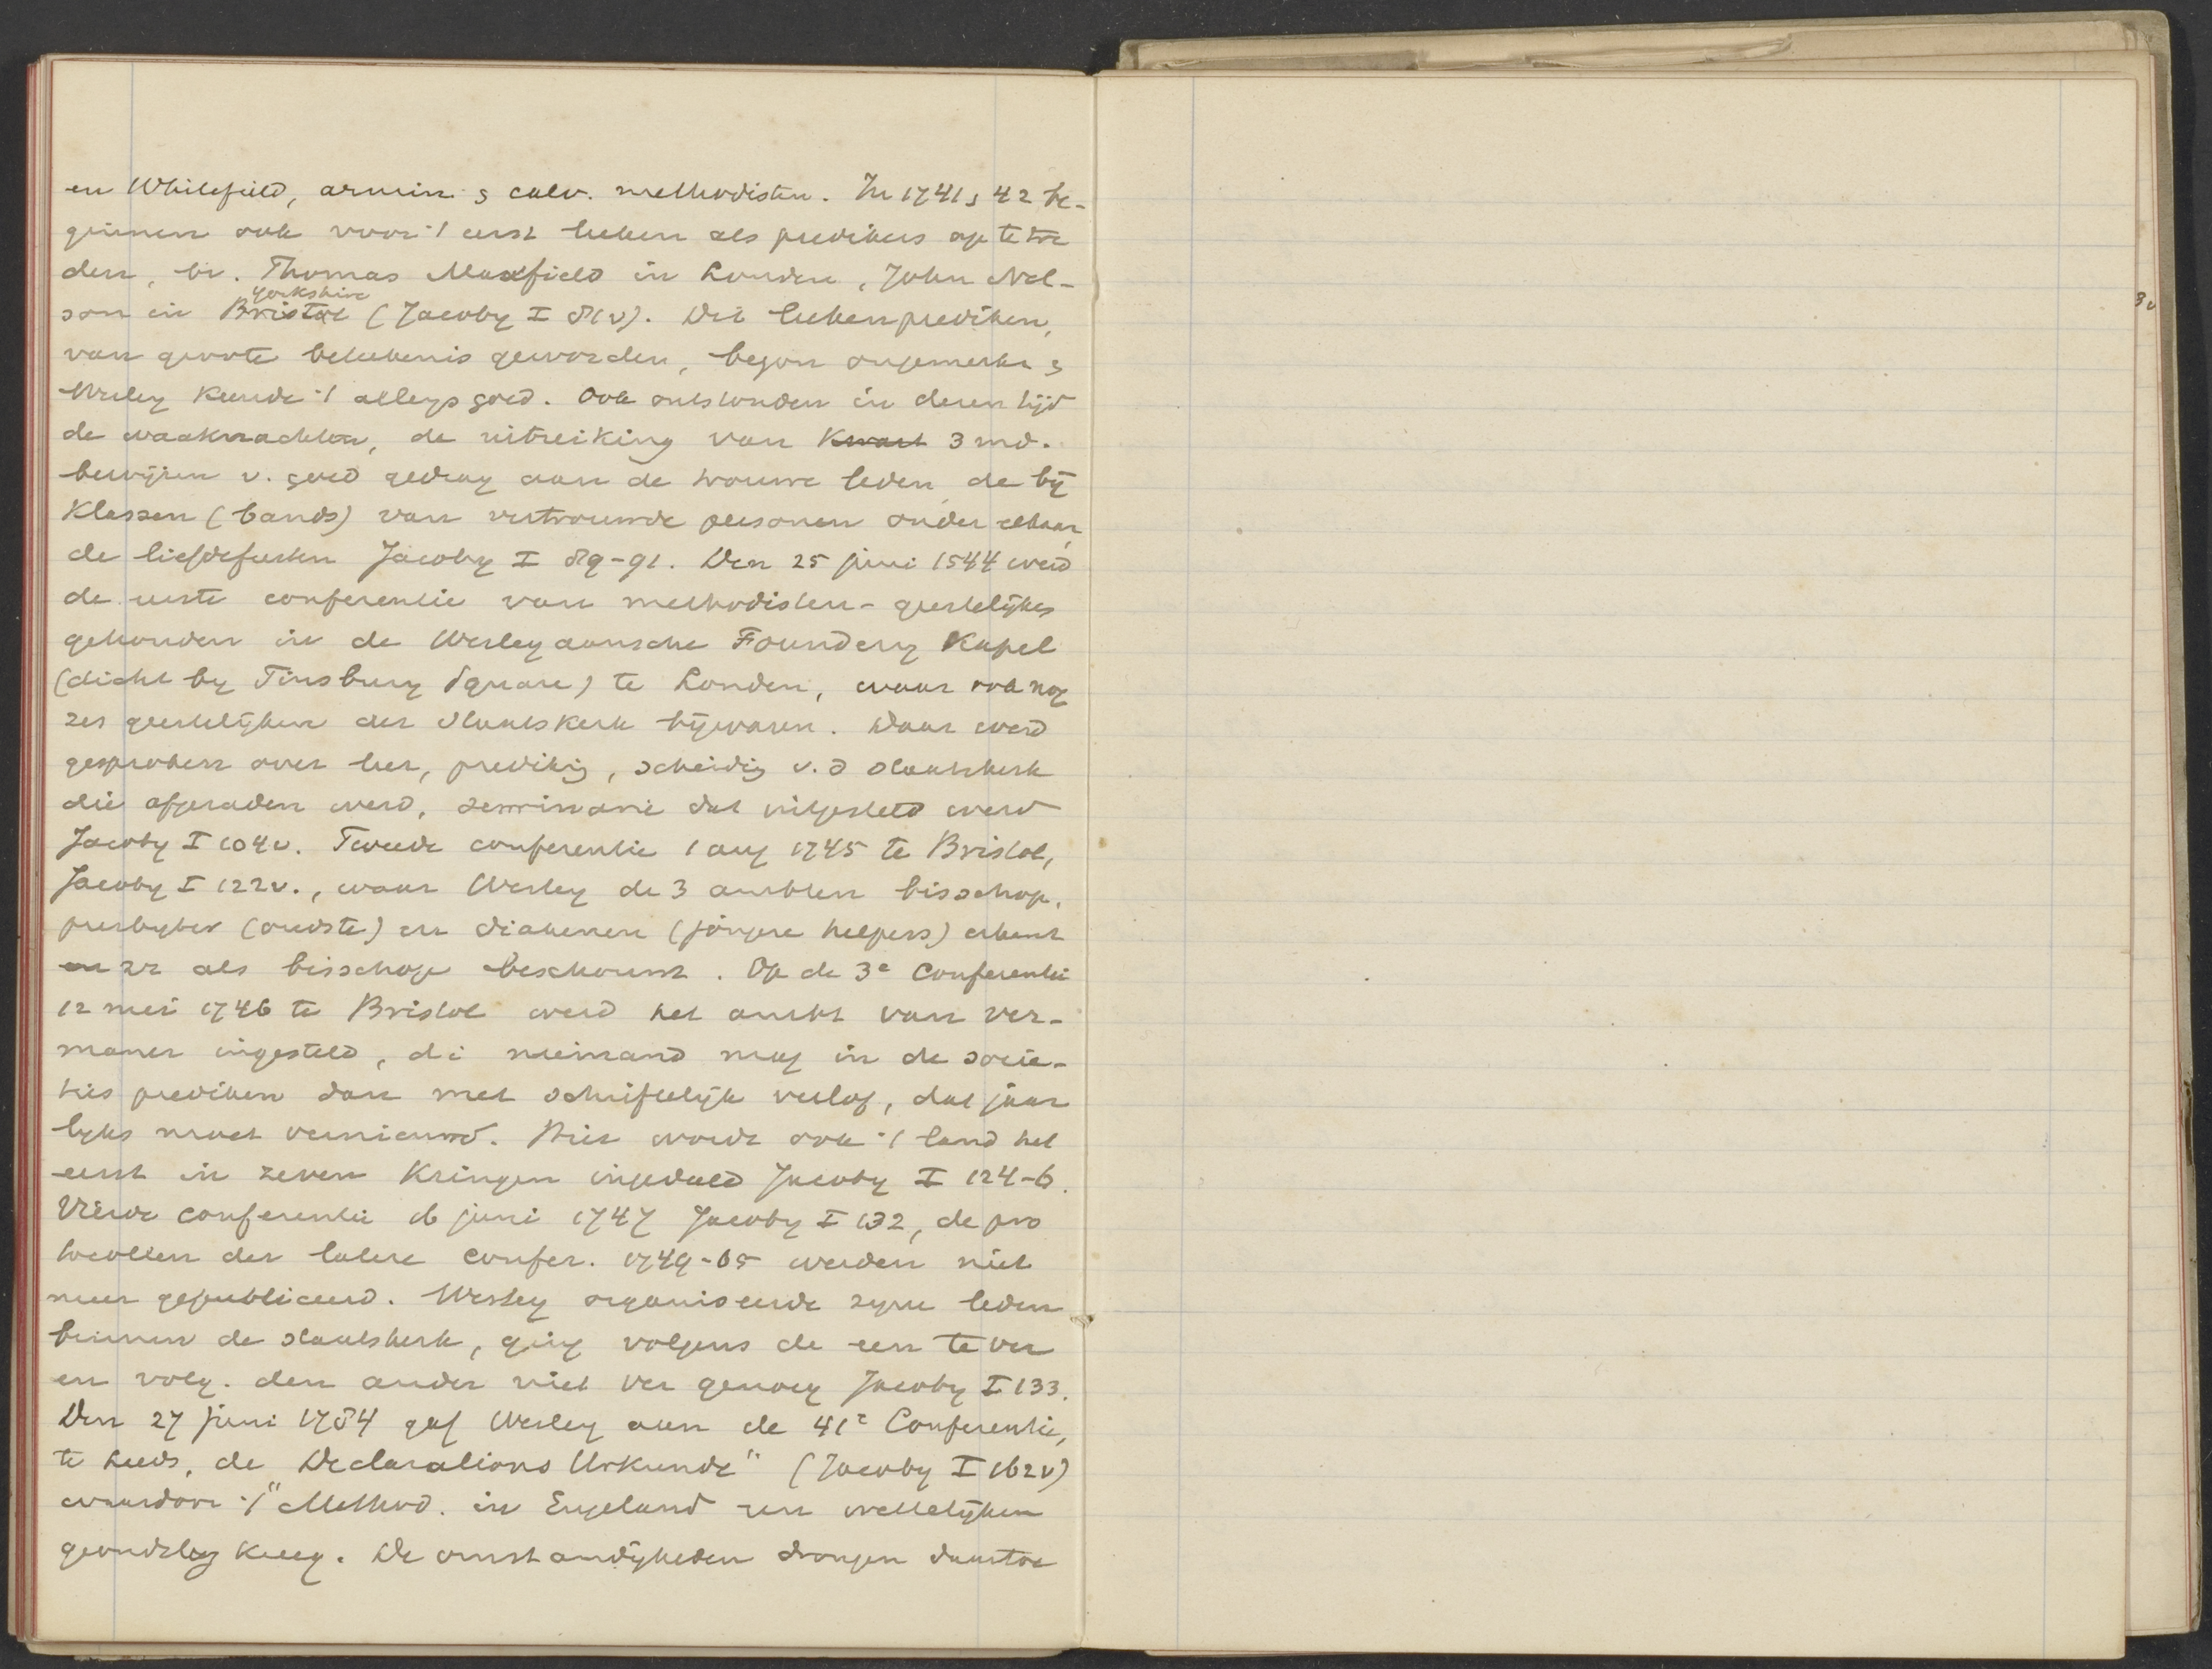 en Whitefield, armin. & calv. methodisten. In 1741 & 42 be-
ginnen ook voor 't eerst leeken als predikers op te tre
den, bv. Thomas Maxfield in Londen, John Nel-
yorkshire
son in Bristol (Jacoby I 81v). Dit leekenprediken,
van groote beteekenis geworden, begon ongemerkt &
Wesley keurde 't allengs goed. Ook ontstonden in dezen tijd
de waaknachten, de uitreiking van kwart 3 md.
bewijzen v. goed gedrag aan de trouwe leden, de bij
klassen (bands) van vertrouwde personen onder elkaar,
de liefdefeesten Jacoby I 89-91. Den 25 juni 1544 werd
de eerste conferentie van methodisten-geestelijkes
gehouden in de Wesleyaansche Foundery Kapel
(dicht by Finsbury Square) te Londen, waar ook nog
zes geestelijken der Staatskerk bijwaren. Daar werd
gesproken over leer, predikig, scheidig v. d staatskerk
die afgeraden werd, seminarie dat uitgesteld werd
Jacoby I 104v. Tweede conferentie 1 aug 1745 te Bristol,
Jacoby I 122v., waar Wesley de 3 ambten bisschop,
presbyter (oudste) en diakenen (jongere helpers) erkent
en zz als bisschop beschouwt. Op de 3e Conferentie
12 mei 1746 te Bristol werd het ambt van ver-
maner ingesteld, di niemand mag in de socie-
ties prediken dan met schriftelijk verlof, dat jaar
lyks moet vernieuwd. Hier wordt ook 't land het
eerst in zeven Kringen ingedeeld Jacoby I 124-6.
Vierde conferentie 16 juni 1747 Jacoby I 132, de pro
tocollen der latere confer. 1749-65 werden niet
meer gepubliceerd. Wesley organiseerde zyne leden
binnen de staatskerk, ging volgens de een te ver
en volg. den ander niet ver genoeg Jacoby I 133.
Den 27 juni 1784 gaf Wesley aan de 41e Conferentie,
te Leeds, de Declarations Urkunde" (Jacoby I 162v)
waardoor 't Method. in Engeland een wettelijken
grondslag kreeg. De omstandigheden drongen daartoe